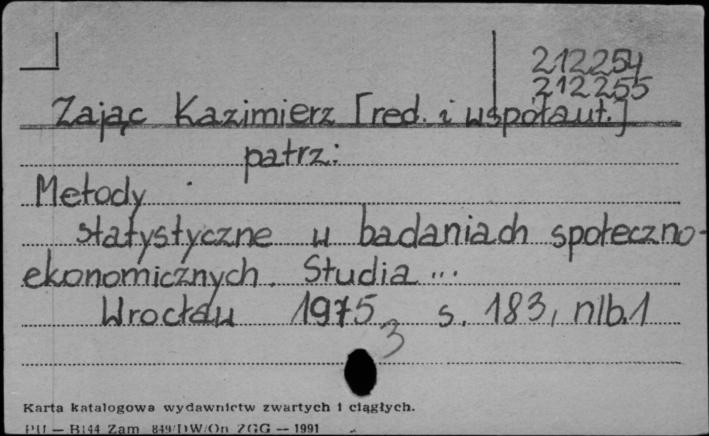 212254
212255
Zając Kazimierz [red. i współaut.]
patrz:
Metody
statystyczne w badaniach społeczno-
ekonomicznych. Studia ...
Wrocław 1975 s. 183, nlb.1
3
Karta katalogowa wydawnictw zwartych i ciągłych.
PU — B144 Zam. 849/DW/On ZGG — 1991